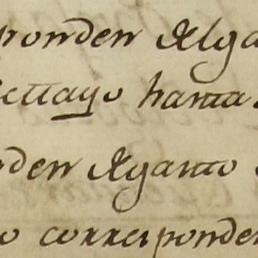 ponden Alga
ettayo hanta
nden Aganto
o correiponden